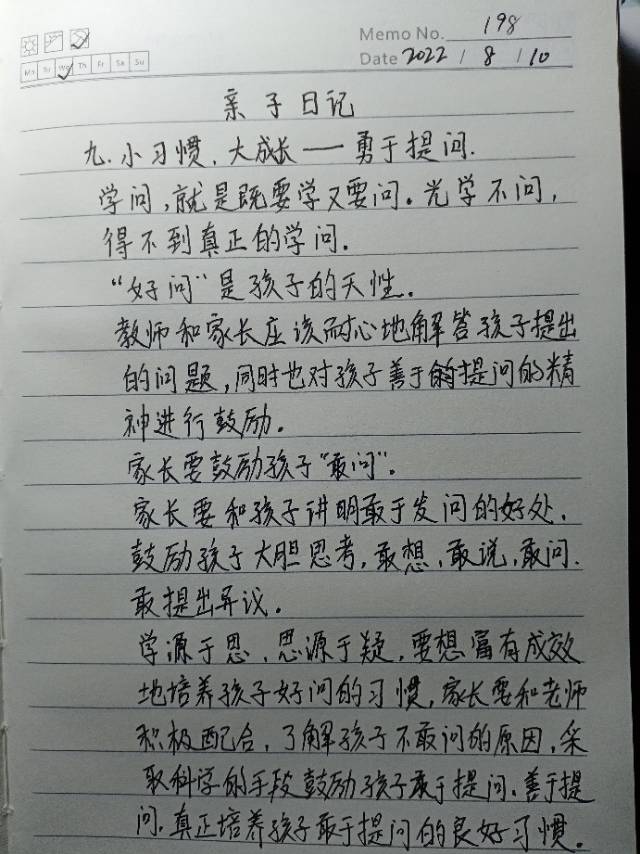 Memo No. 198
Mo Tu We Th Fr Sa Su
Date 2022 / 8 / 10
亲子日记
九.小习惯.大成长——勇于提问.
学问,就是既要学又要问。光学不问,
得不到真正的学问.
“好问”是孩子的天性.
教师和家长应该耐心地解答孩子提出
的问题,同时也对孩子善于提问的精
神进行鼓励。
家长要鼓励孩子“敢问”.
家长要和孩子讲明敢于发问的好处.
鼓励孩子大胆思考,敢想,敢说,敢问.
敢提出异议。
学源于思.思源于疑,要想富有成效
地培养孩子好问的习惯,家长要和老师
积极配合,了解孩子不敢问的原因,采
取科学的手段鼓励孩子敢于提问.善于提
问.真正培养孩子敢于提问的良好习惯。